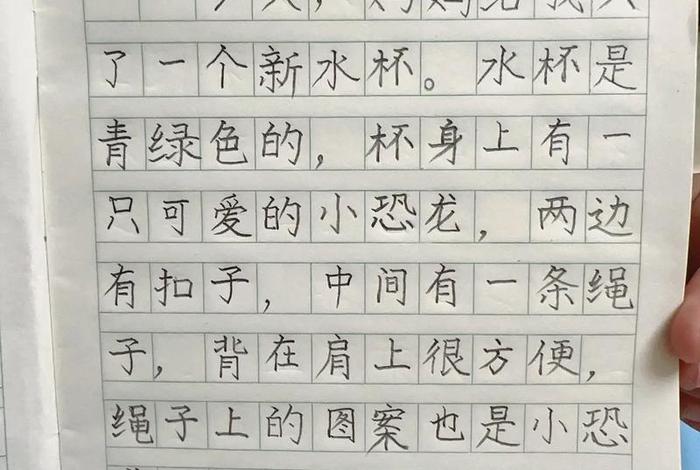 天，妈妈给我买
了一个新水杯。水杯是
青绿色的，杯身上有一
只可爱的小恐龙，两边
有扣子，中间有一条绳
子，背在肩上很方便，
绳子上的图案也是小恐